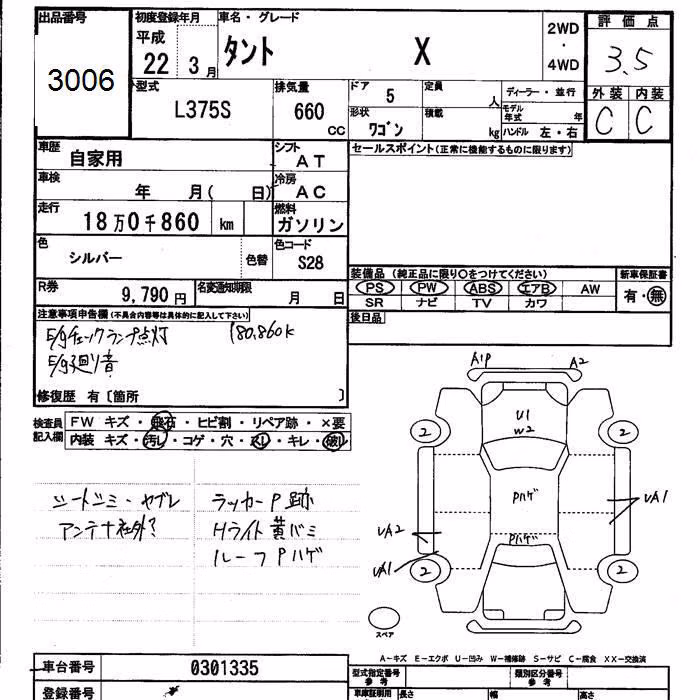 出品番号
3006
初度登録年月
平成
22 3月
車名・グレード
タント X
2WD
・
4WD
評価点
3.5
外装 内装
C C
型式
L375S
排気量
660
cc
ドア 5
定員
人
形状
ワゴン
積載
kg
ディーラー・並行
モデル
年式
年
ハンドル 左・右
車歴
自家用
シフト
AT
セールスポイント(正常に機能するものに限ります)
車検
年 月( 日)
冷房
AC
走行
18万0千860 km
燃料
ガソリン
色
シルバー
色替
色コード
S28
装備品 (純正品に限り○をつけてください)
新車保証書
PS PW ABS エアB AW
SR ナビ TV カワ
有・無
R券
9,790円
名変通知期限
月 日
後日品
注意事項申告欄(不具合内容等は具体的に記入して下さい)
E/gチェックランプ点灯 180,860k
E/g廻り音
修復歴 有〔箇所 〕
検査員
記入欄
FW キズ・飛石・ヒビ割・リペア跡・×要
内装 キズ・汚レ・コゲ・穴・スレ・キレ・破レ
シートシミ・ヤブレ
アンテナ社外?
ラッカーP跡
Hライト黄バミ
ルーフPハゲ
A1P A2
U1
W2
2 2
Pハゲ
UA1
UA2
Pハゲ
UA1
2 2
スペア
A-キズ E-エクボ U-凹み W-補修跡 S-サビ C-腐食 XX-交換済
車台番号
0301335
登録番号
型式指定番号
参考
類別区分番号
参考
車庫証明用
長さ
幅
高さ